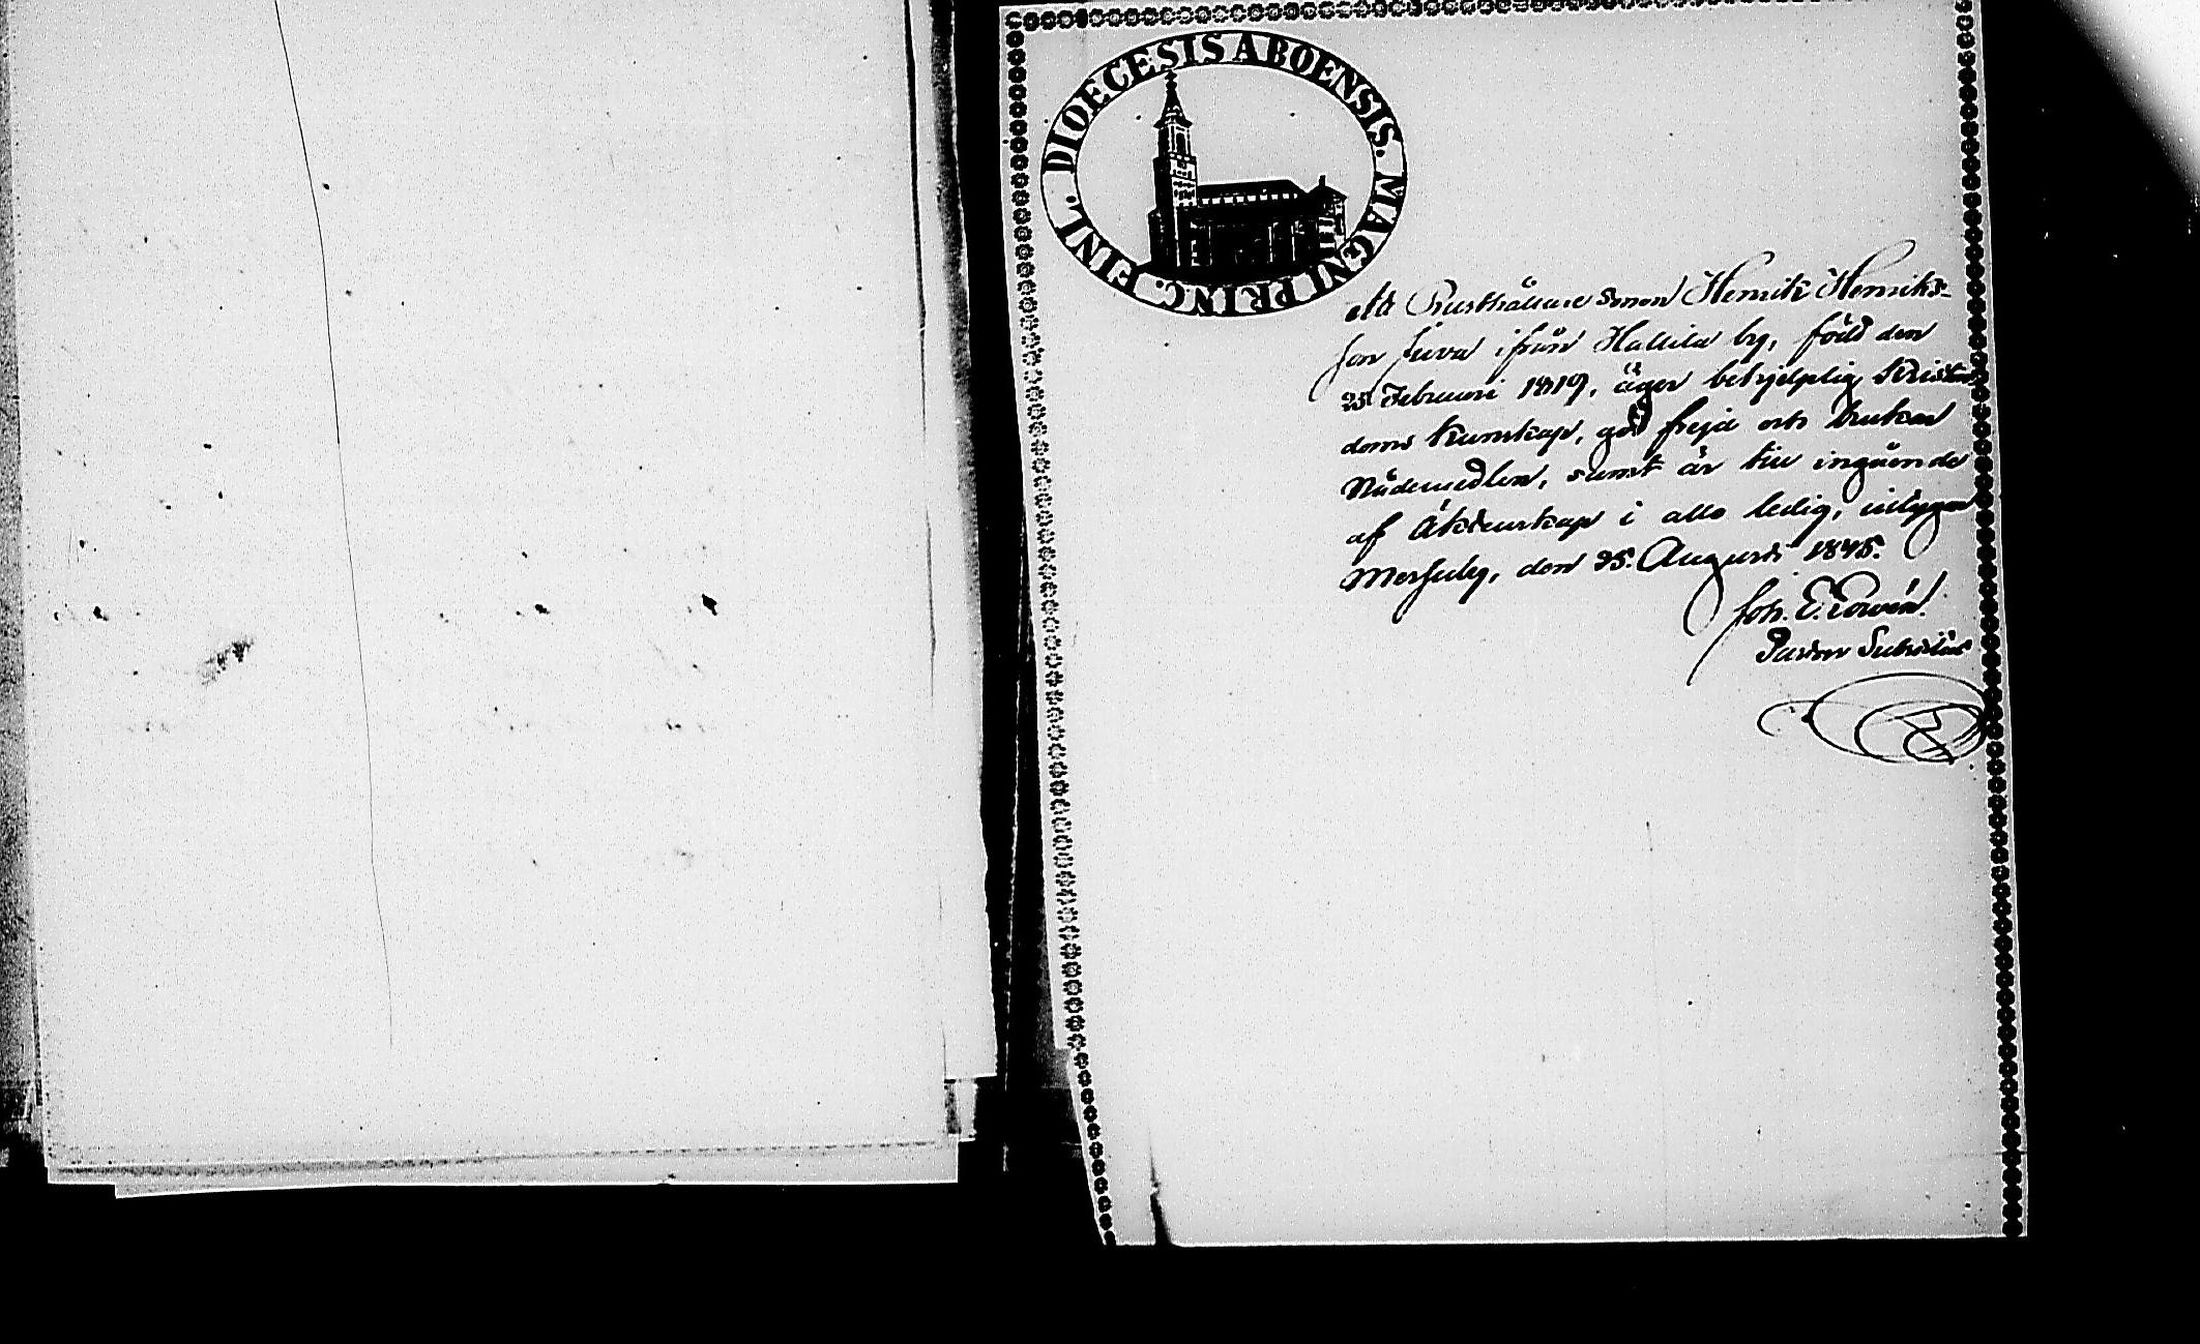 DIOECESIS ABOENSIS. MAGNI PRINC. FINL.
Att Rusthållare sonen Henrik Henriks-
son Juva ifrån Hallila by, född den
25 Februari 1819, äger behjelplig Kristen
doms kunskap, god frejd och brukar
Nådemedlen, samt är till ingående
af Äktenskap i allo ledig, intygar
Messuby, den 25. Augusti 1845.
Joh. E.
Pastor